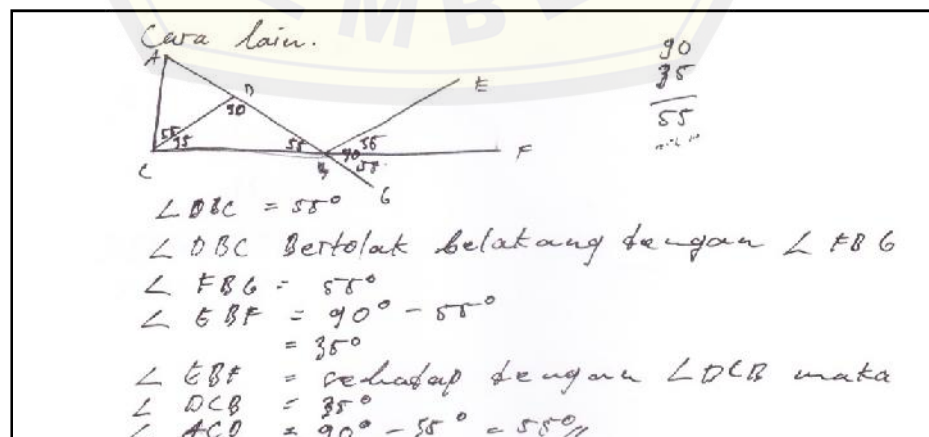 MBE
Cara lain.
A
D
E
90
90
35
55
55
35
55
90
35
55
C
B
F
G
∠ DBC = 55°
∠ DBC Bertolak belakang dengan ∠ FBG
∠ FBG = 55°
∠ EBF = 90° - 55°
= 35°
∠ EBF = sehadap dengan ∠ DCB maka
∠ DCB = 35°
∠ ACD = 90° - 35° = 55°//